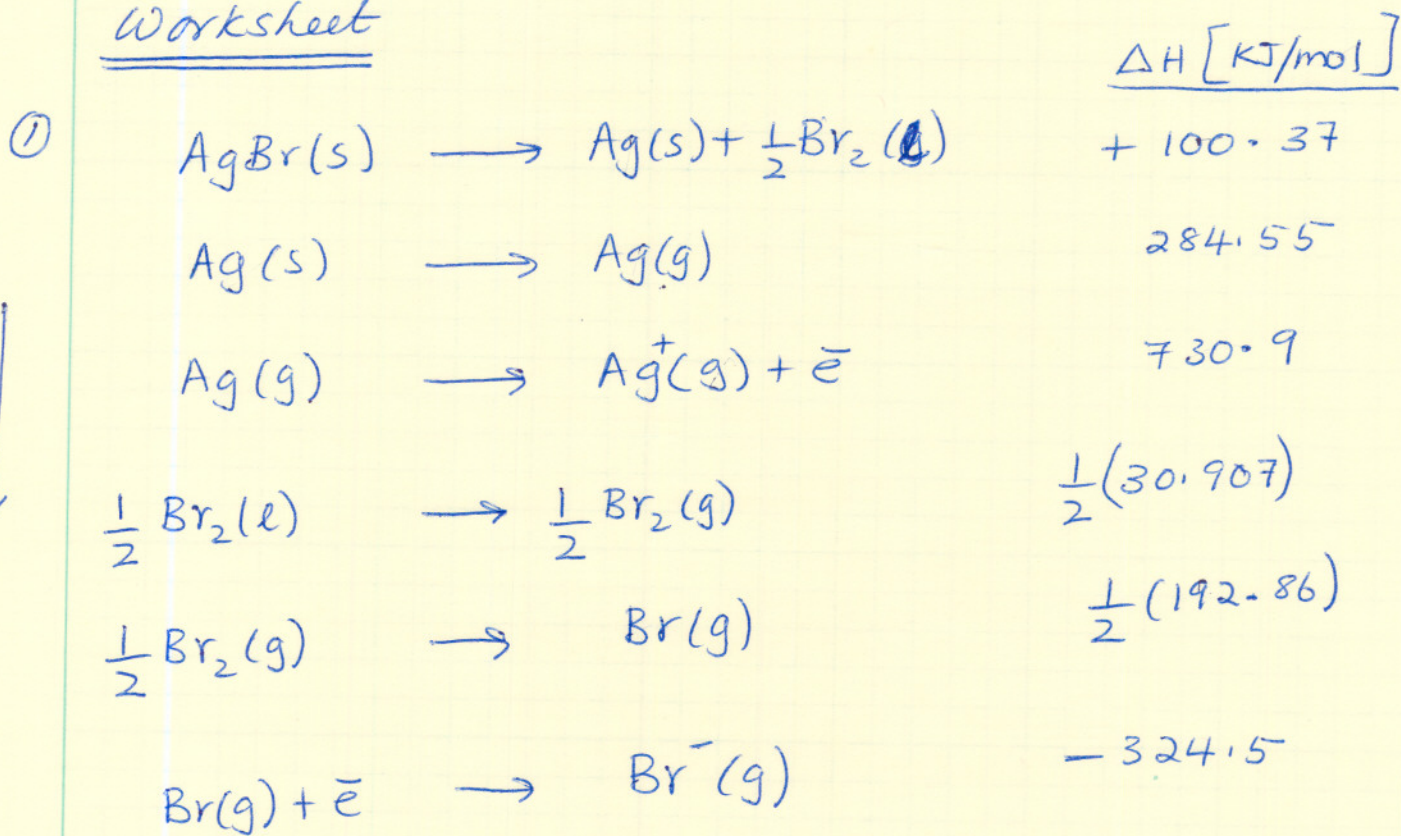 Worksheet
ΔH [KJ/mol]
① AgBr(s) → Ag(s) + 1/2 Br₂ (l) + 100.37
Ag(s) → Ag(g) 284.55
Ag(g) → Ag⁺(g) + e̅ 730.9
1/2 Br₂(l) → 1/2 Br₂(g) 1/2(30.907)
1/2 Br₂(g) → Br(g) 1/2(192.86)
Br(g) + e̅ → Br⁻(g) - 324.5